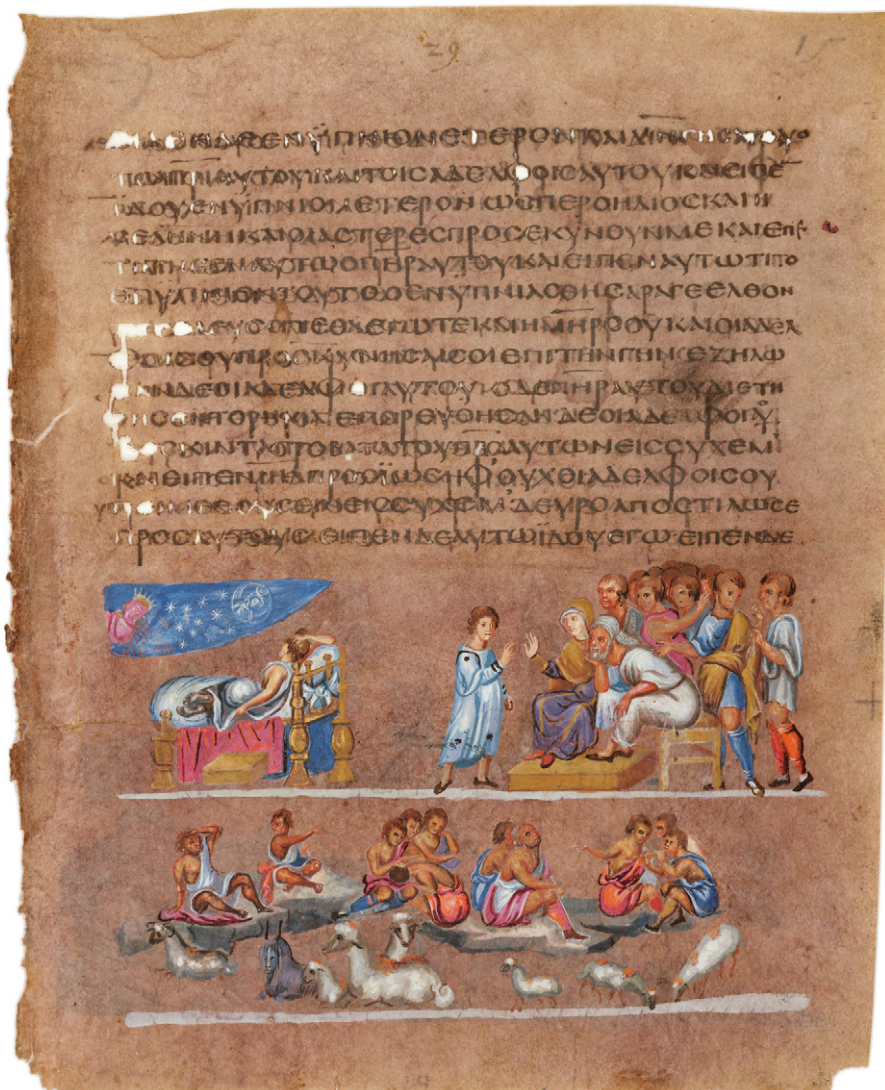 29
15
ΔΕΕΝΫΠΝΙΟΝΕΤΕΡΟΝΚΑΙΔΙΗΓΗϹΑΤΟΑΥΤΟ
ΤΩΠΡΙΑΥΤΟΥΚΑΙΤΟΙϹΑΔΕΛΦΟΙϹΑΥΤΟΥΚΑΙΕΙΠΕ
ΙΔΟΥΕΝΫΠΝΙΟΙΔΕΤΕΡΟΝΩϹΠΕΡΟΗΛΙΟϹΚΑΙΗ
ϹΕΛΗΝΗΚΑΙΟΙΑϹΤΕΡΕϹΠΡΟϹΕΚΥΝΟΥΝΜΕΚΑΙΕΠΕ
ΤΙΜΗϹΕΝΑΥΤΩΟΠΗΡΑΥΤΟΥΚΑΙΕΙΠΕΝΑΥΤΩΤΙΤΟ
ΕΝΥΠΝΙΟΝΤΟΥΤΟΟΕΝΥΠΝΙΑϹΘΗϹΑΡΑΓΕΕΛΘΟΝ
ΕΥϹΟΜΕΘΑΕΓΩΤΕΚΑΙΗΜΗΡϹΟΥΚΑΙΟΙΑΔΕΛ
ΦΟΙϹΟΥΠΡΟϹΚΥΝΗϹΑΙϹΟΙΕΠΙΤΗΝΓΗΝΕΖΗΛΩ
ϹΑΝΔΕΟΙΑΔΕΛΦΟΙΑΥΤΟΥΟΔΕΠΗΡΑΥΤΟΥΔΙΕΤΗ
ΡΗϹΕΝΤΟΡΗΜΑΕΠΟΡΕΥΘΗϹΑΝΔΕΟΙΑΔΕΛΦΟΙΑΥ
ΒΟϹΚΙΝΤΑΠΡΟΒΑΤΑΤΟΥΠΡϹΑΥΤΩΝΕΙϹϹΥΧΕΜ
ΚΑΙΕΙΠΕΝΙΗΛΠΡΟϹΪΩϹΗΦΟΥΧΟΙΑΔΕΛΦΟΙϹΟΥ
ΠΟΙΜΕΝΟΥϹΕΙΝΕΙϹϹΥΧΕΜΔΕΥΡΟΑΠΟϹΤΙΛΩϹΕ
ΠΡΟϹΑΥΤΟΥϹΕΙΠΕΝΔΕΑΥΤΩΪΔΟΥΕΓΩΕΙΠΕΝΔΕ